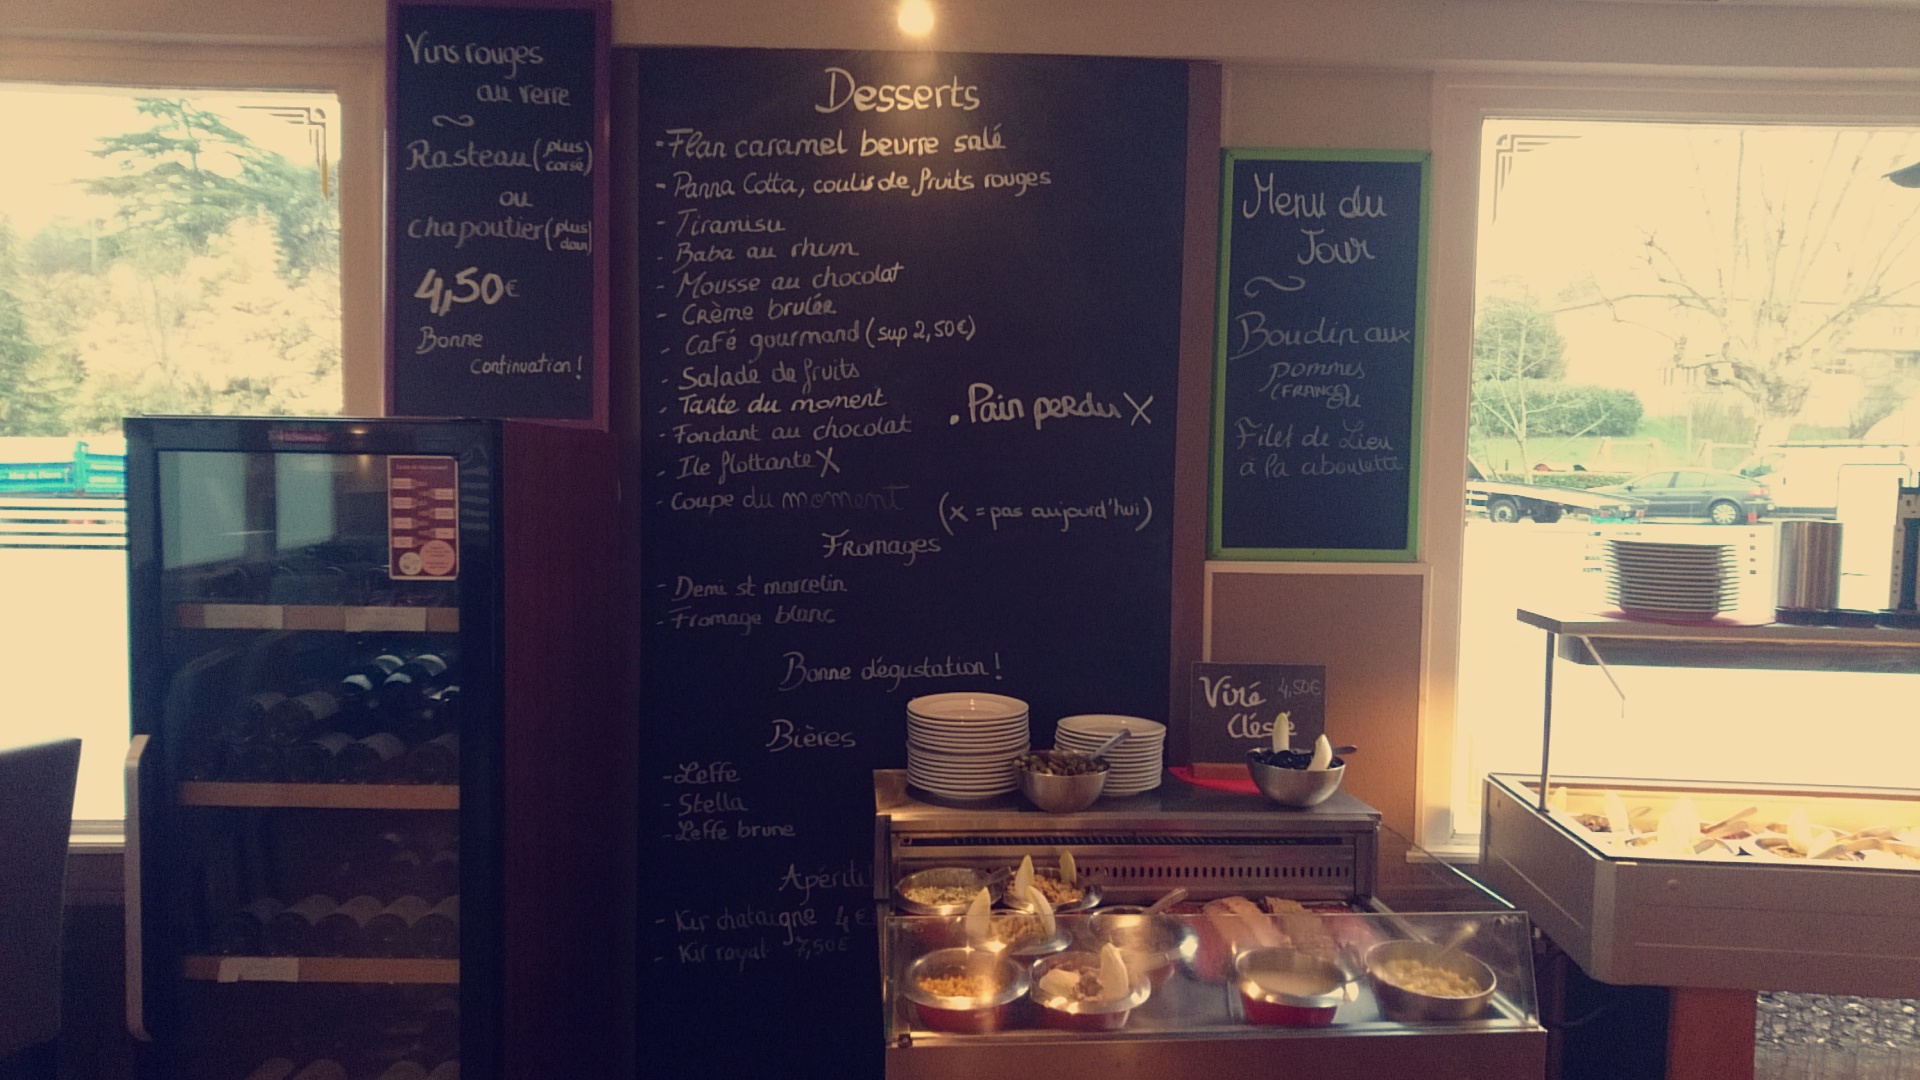 Vins rouges
au verre
Rasteau (plus corsé)
ou
Chapoutier (plus doux)
4,50€
Bonne
continuation !
Desserts
- Flan caramel beurre salé
- Panna Cotta, coulis de fruits rouges
- Tiramisu
- Baba au rhum
- Mousse au chocolat
- Crème brulée
- Café gourmand (sup 2,50€)
- Salade de fruits
- Tarte du moment
- Fondant au chocolat
- Ile flottante X
- Coupe du moment
. Pain perdu X
(x = pas aujourd'hui)
Fromages
- Demi st marcelin
- Fromage blanc
Bonne dégustation !
Bières
- Leffe
- Stella
- Leffe brune
Apériti
- Kir chataigne 4 €
- Kir royal 7,50€
Menu du
Jour
Boudin aux
pommes
(FRANCE)
ou
Filet de Lieu
à la ciboulette
Viré 4,50€
Clessé